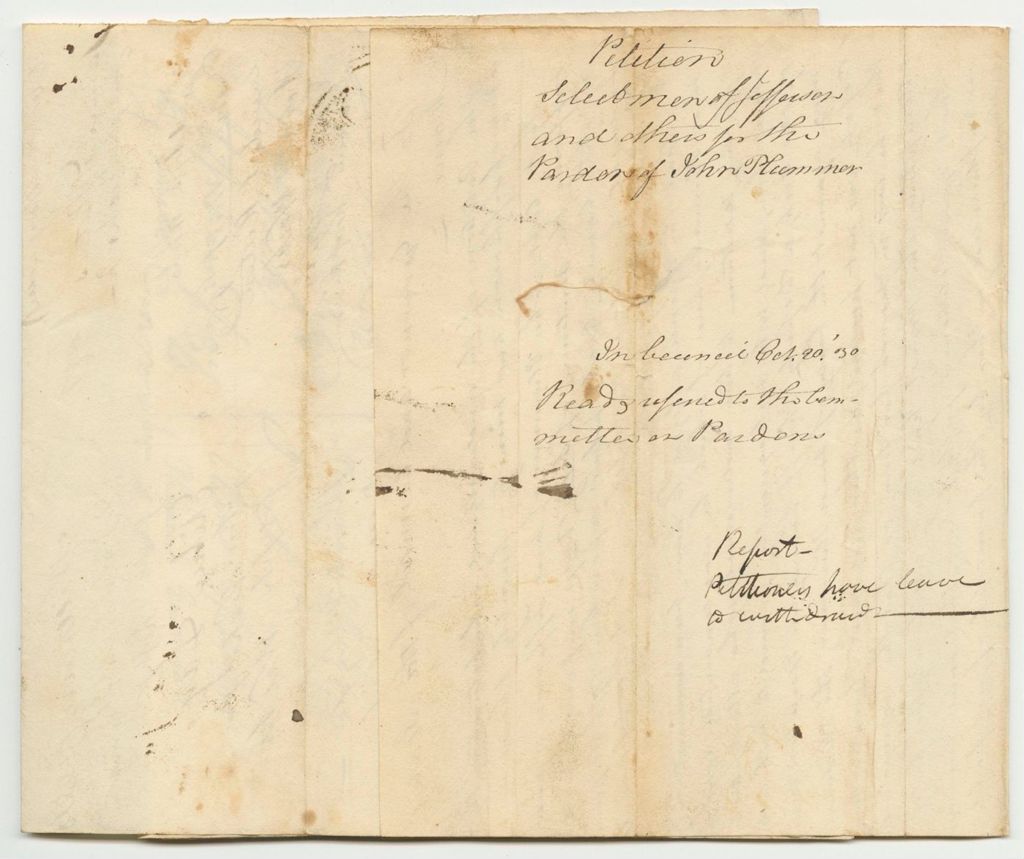 Petition
Selectmen of Jefferson
and others for the
Pardon of John Plummer
In Council Oct. 20. '30
Read & refered to the Com-
mittee on Pardons
Report -
Petitioners have leave
to withdraw